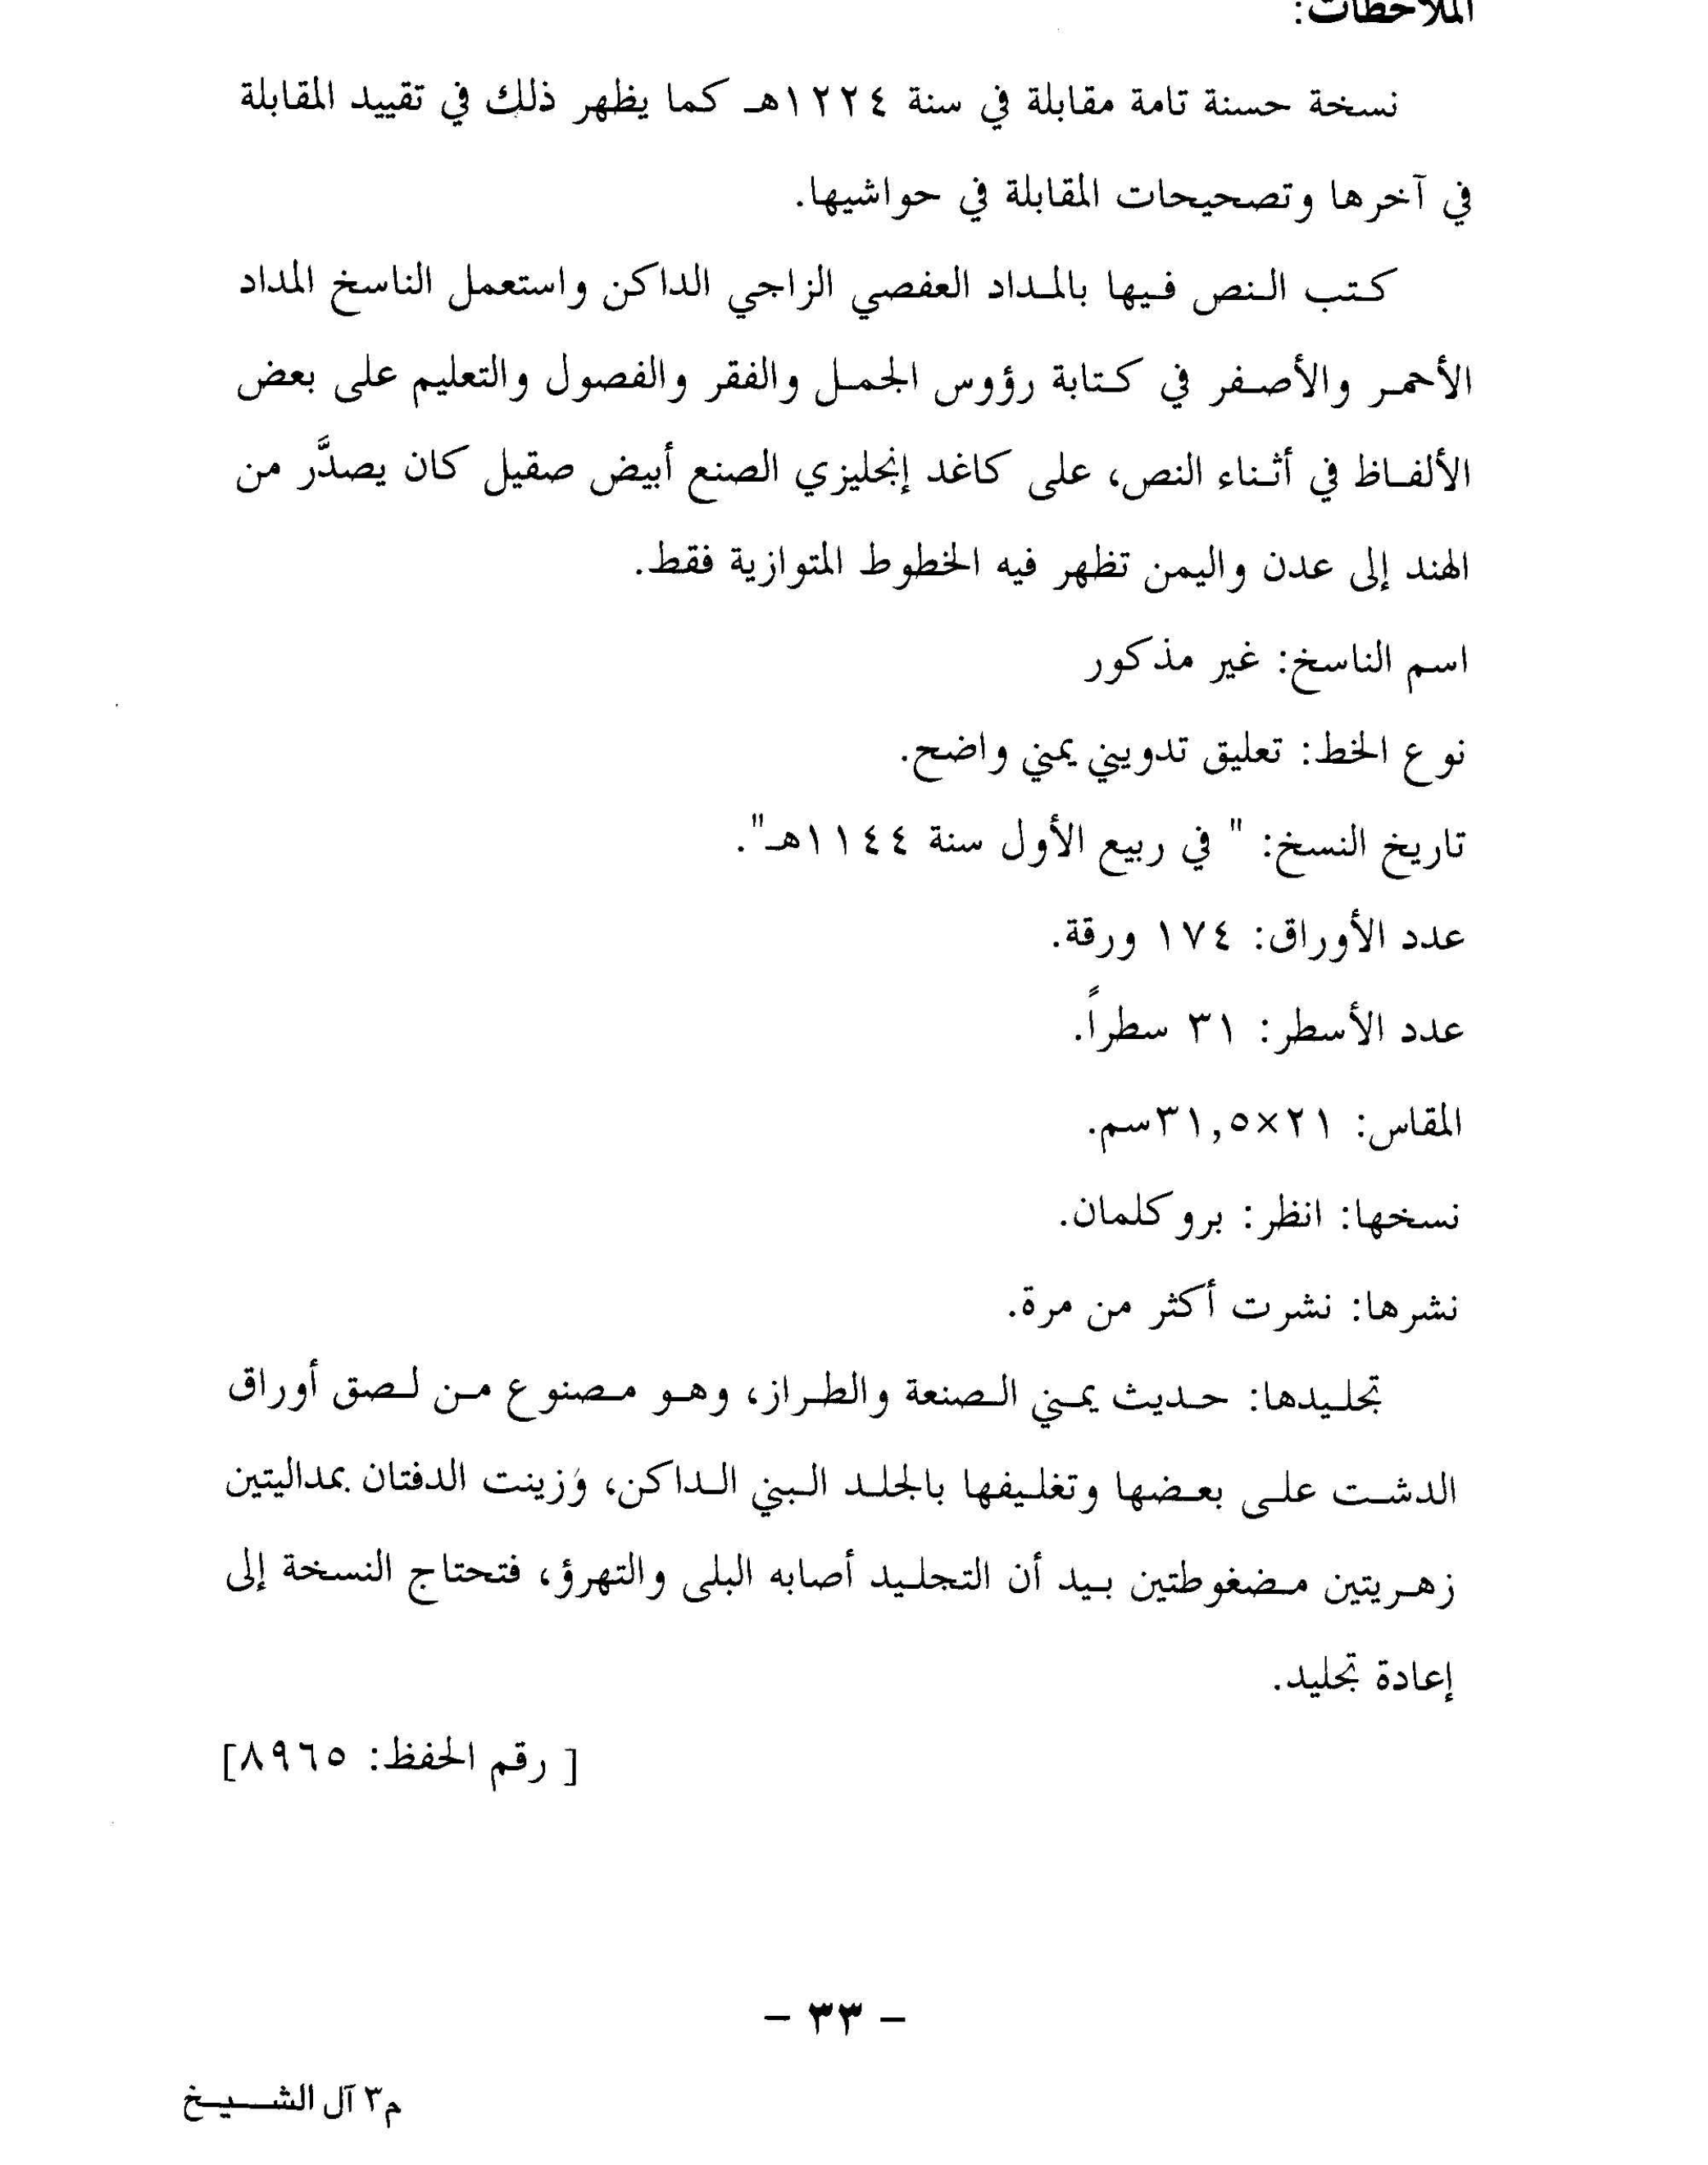 الملاحظات:
نسخة حسنة تامة مقابلة في سنة ١٢٢٤هـ كما يظهر ذلك في تقييد المقابلة
في آخرها وتصحيحات المقابلة في حواشيها.
كتب النص فيها بالمداد العفصي الزاجي الداكن واستعمل الناسخ المداد
الأحمر والأصفر في كتابة رؤوس الجمل والفقر والفصول والتعليم على بعض
الألفاظ في أثناء النص، على كاغد إنجليزي الصنع أبيض صقيل كان يصدَّر من
الهند إلى عدن واليمن تظهر فيه الخطوط المتوازية فقط.
اسم الناسخ: غير مذكور
نوع الخط: تعليق تدويني يمني واضح.
تاريخ النسخ: " في ربيع الأول سنة ١١٤٤هـ".
عدد الأوراق: ١٧٤ ورقة.
عدد الأسطر: ٣١ سطراً.
المقاس: ٢١×٣١,٥سم.
نسخها: انظر: بروكلمان.
نشرها: نشرت أكثر من مرة.
تجليدها: حديث يمني الصنعة والطراز، وهو مصنوع من لصق أوراق
الدشت على بعضها وتغليفها بالجلد البني الداكن، وَزينت الدفتان بمداليتين
زهريتين مضغوطتين بيد أن التجليد أصابه البلى والتهرؤ، فتحتاج النسخة إلى
إعادة تجليد.
[ رقم الحفظ: ٨٩٦٥]
- ٣٣ -
م٣ آل الشيخ